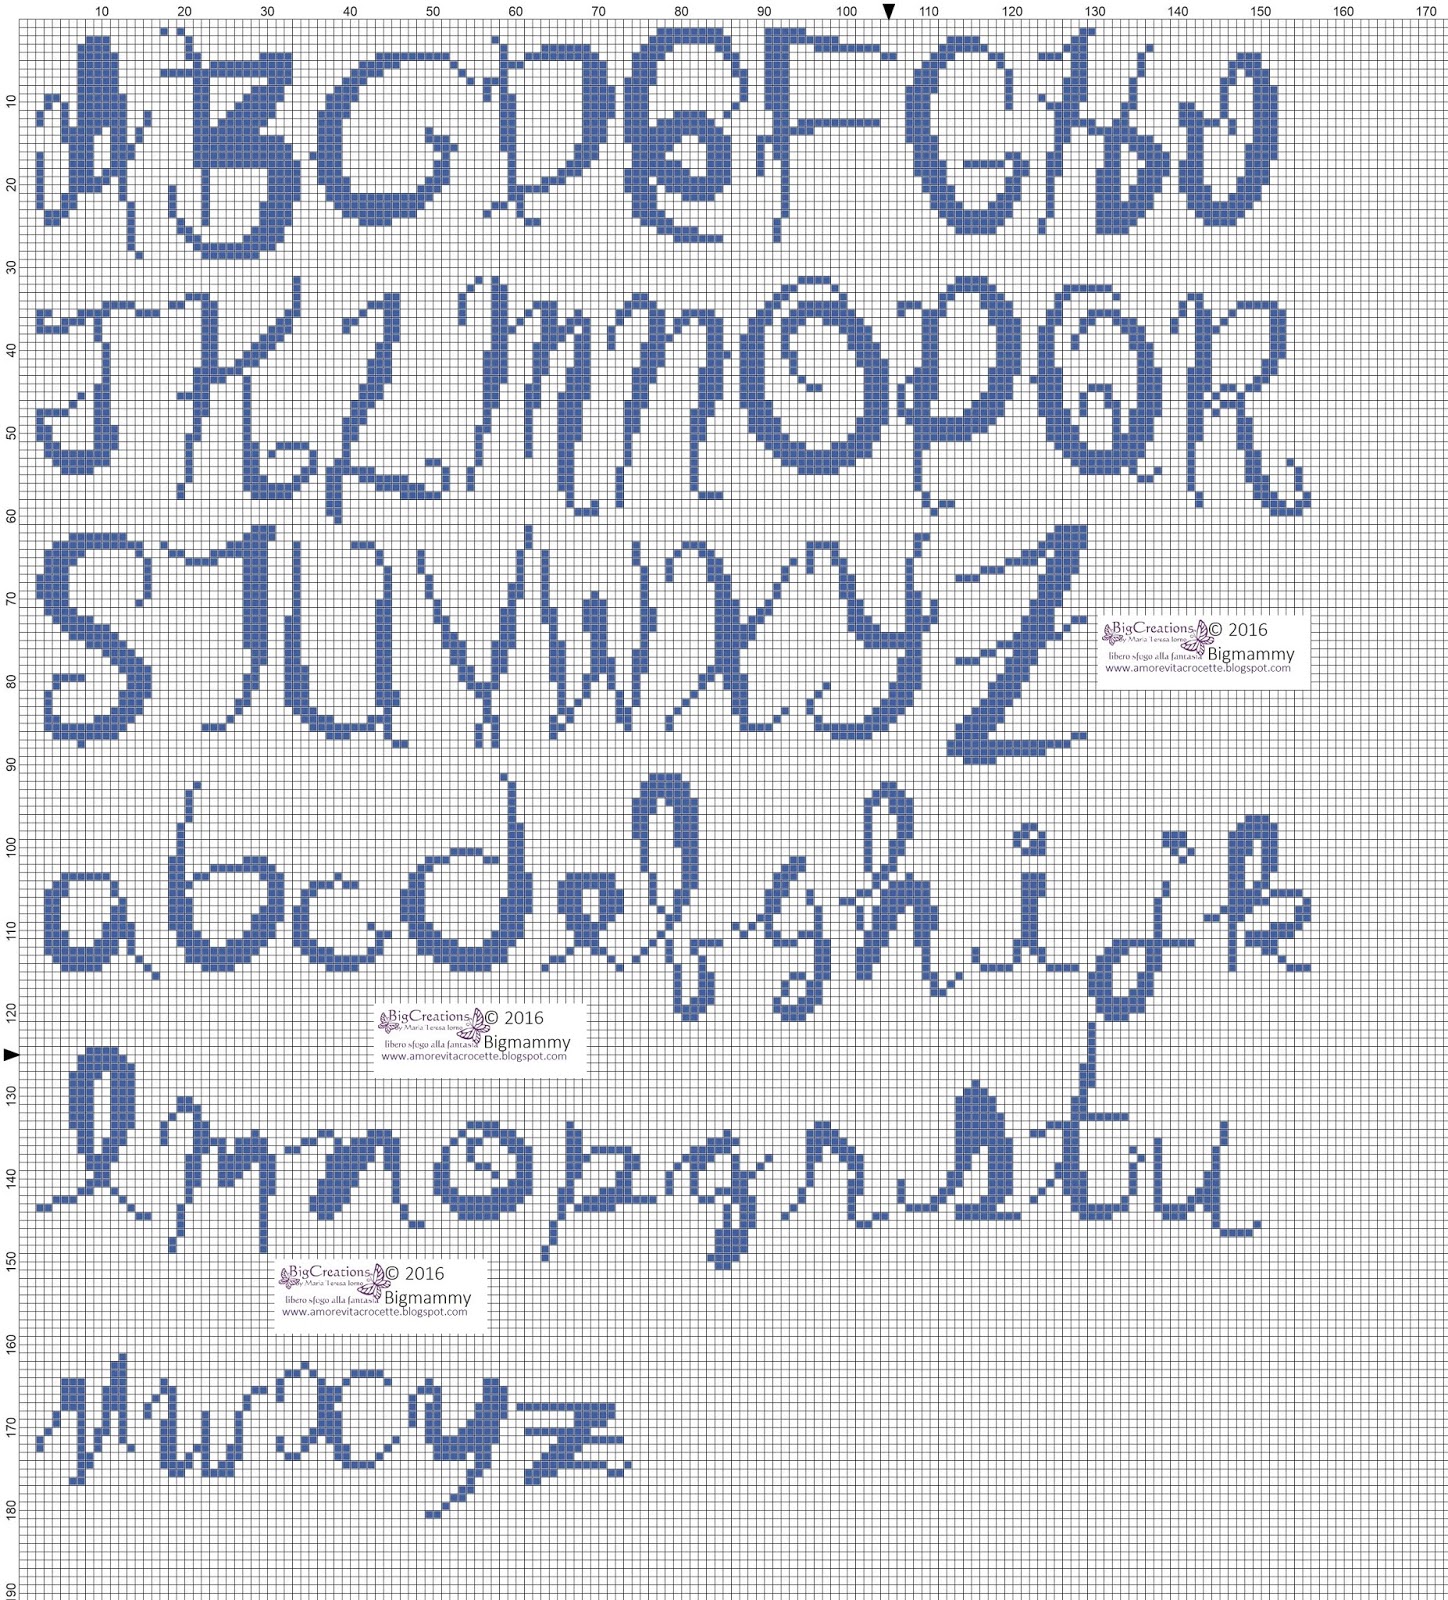 10 20 30 40 50 60 70 80 90 100 110 120 130 140 150 160 170
A B C D E F G H I
10
20
30
J K L M N O P Q R
40
50
60
S T U V W X Y Z
70
80
90
BigCreations © 2016
by Maria Teresa Iorno Bigmammy
libero sfogo alla fantasia
www.amorevitacrocette.blogspot.com
a b c d e f g h i j k
100
110
120
BigCreations © 2016
by Maria Teresa Iorno Bigmammy
libero sfogo alla fantasia
www.amorevitacrocette.blogspot.com
l m n o p q r s t u
130
140
150
BigCreations © 2016
by Maria Teresa Iorno Bigmammy
libero sfogo alla fantasia
www.amorevitacrocette.blogspot.com
160
v w x y z
170
180
190